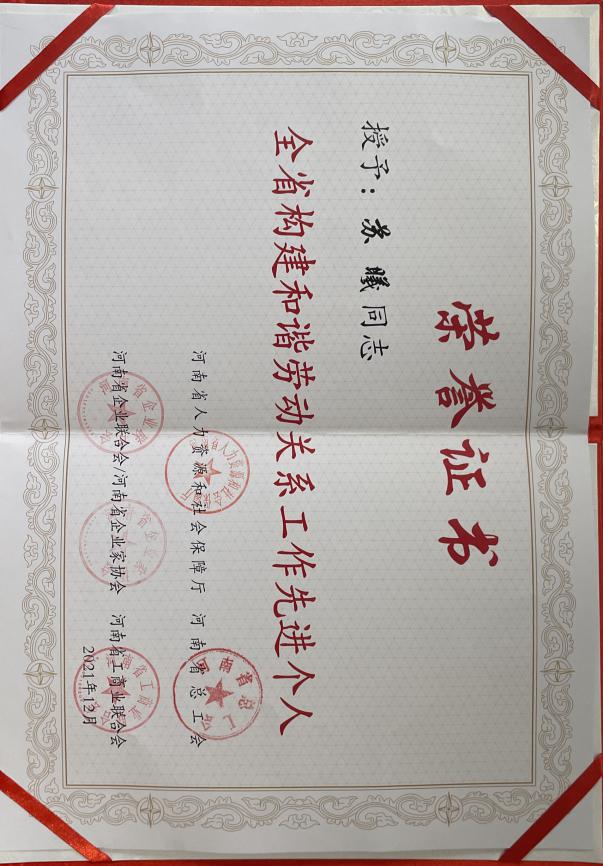 荣誉证书
授予：苏曦同志
全省构建和谐劳动关系工作先进个人
河南省人力资源和社会保障厅 河南省总工会
河南省企业联合会/河南省企业家协会 河南省工商业联合会
2021年12月